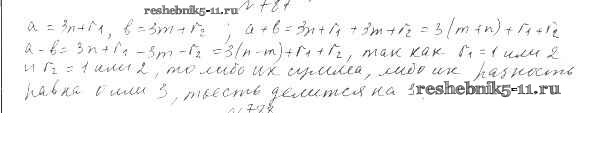 reshebnik5-11.ru
a = 3n+r₁, b = 3m+r₂; a+b = 3n+r₁+3m+r₂ = 3(m+n)+r₁+r₂
a-b = 3n+r₁-3m-r₂ = 3(n-m)+r₁+r₂, так как r₁=1 или 2
и r₂=1 или 2, то либо их сумма, либо их разность
равна 0 или 3, то есть делится на 3
reshebnik5-11.ru